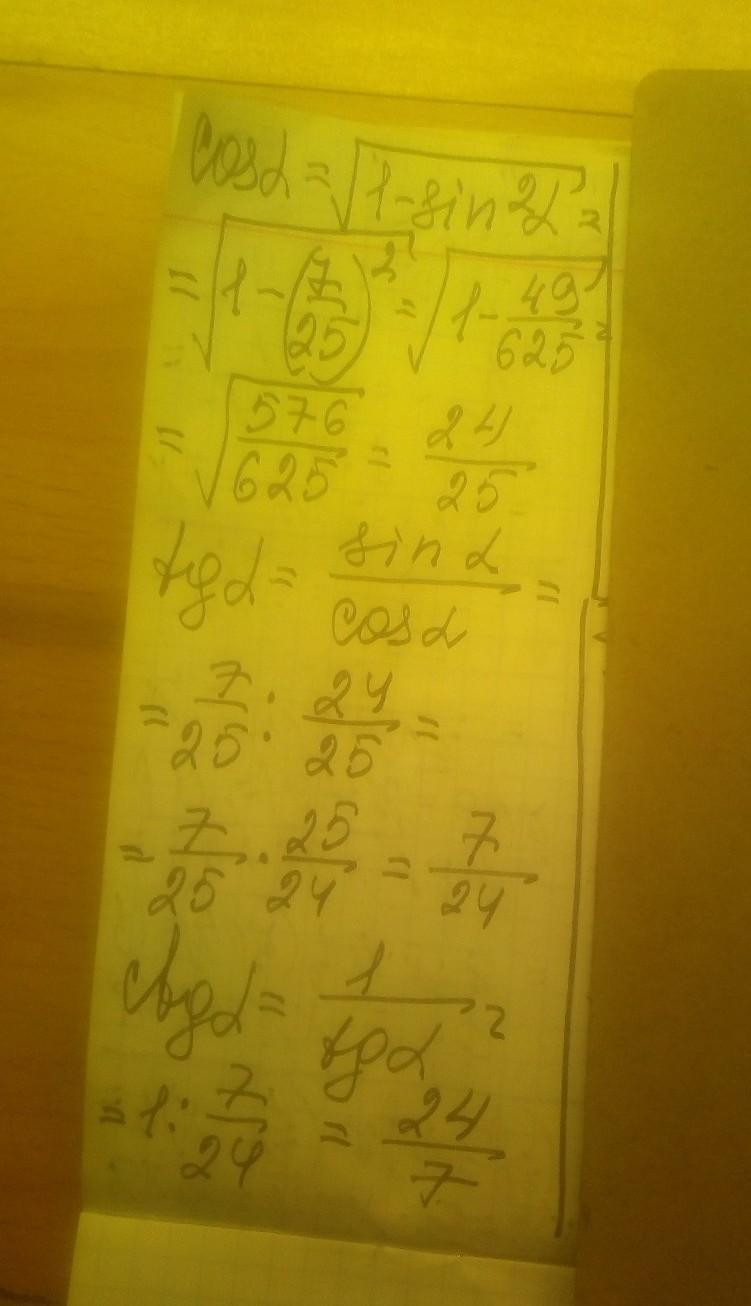 cosα = √(1-sin²α) =
= √(1-(7/25)²) = √(1-49/625) =
= √(576/625) = 24/25
tgα = sinα/cosα =
= 7/25 : 24/25 =
= 7/25 · 25/24 = 7/24
ctgα = 1/tgα =
= 1 : 7/24 = 24/7